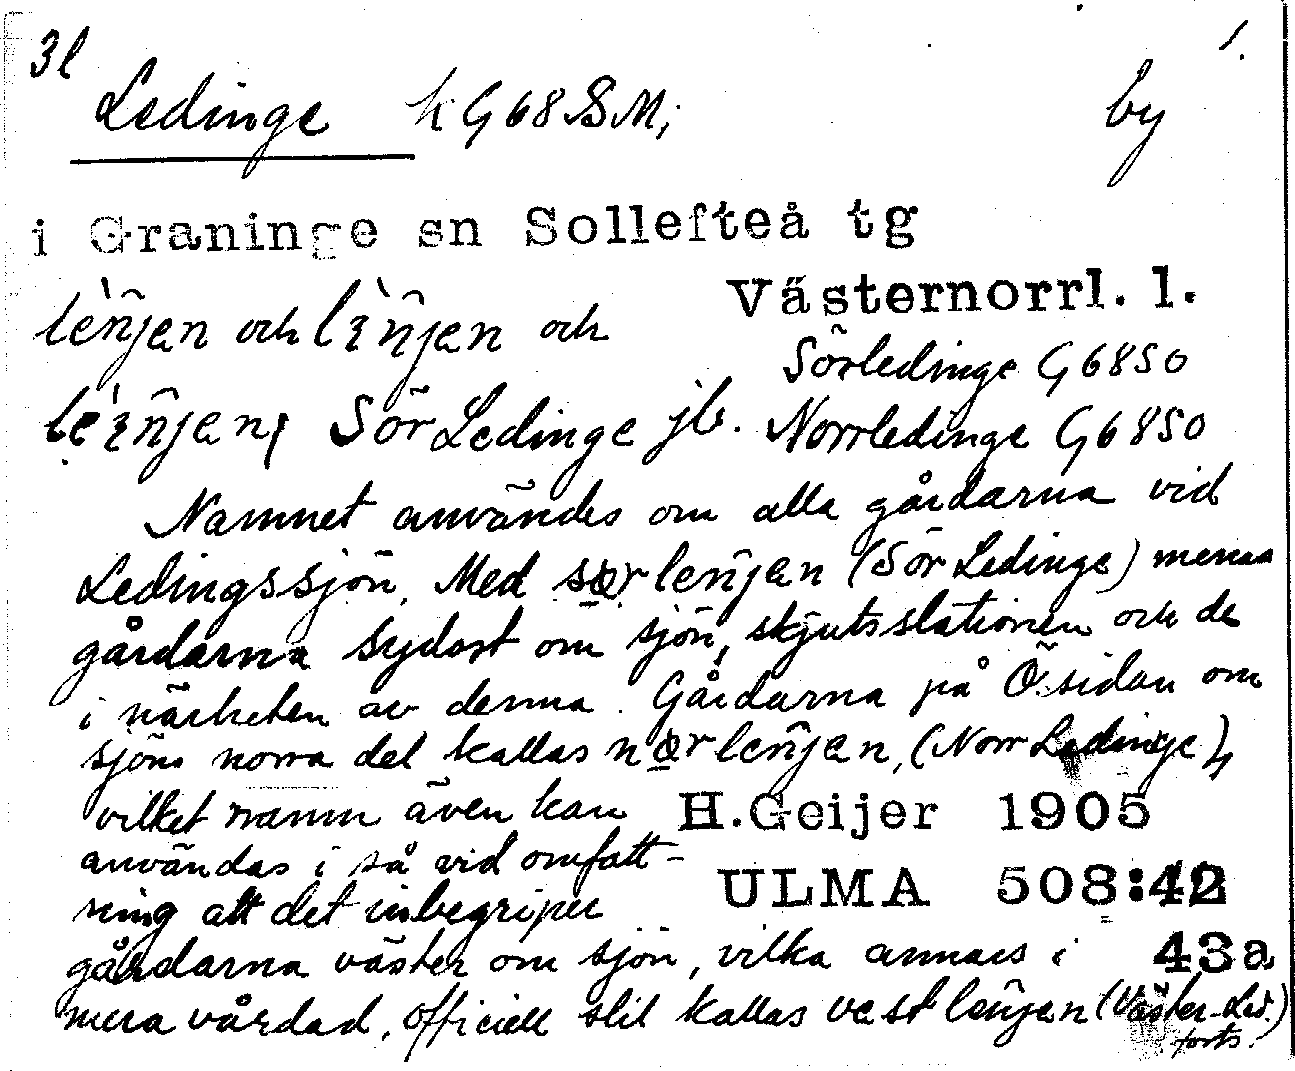 3l 1.
Ledinge k G68SM; by
i Graninge sn Sollefteå tg
Västernorrl. l.
och och
Sörledinge G6850
Sör Ledinge jb. Norrledinge G6850
Namnet användes om alla gårdarna vid
Ledingssjön. Med særlenjen (Sör Ledinge) menas
gårdarna sydost om sjön, skjutsstationen och de
i närheten av denna. Gårdarna på Ösidan om
sjöns norra del kallas nærlenjen, (Norr Ledinge),
vilket namn även kan H.Geijer 1905
användas i så vid omfatt-
ning att det inbegriper ULMA 508:42
gårdarna väster om sjön, vilka annars i 43a
mera vårdad, officiell stil kallas vestlenjen (Väster-Led.)
forts.